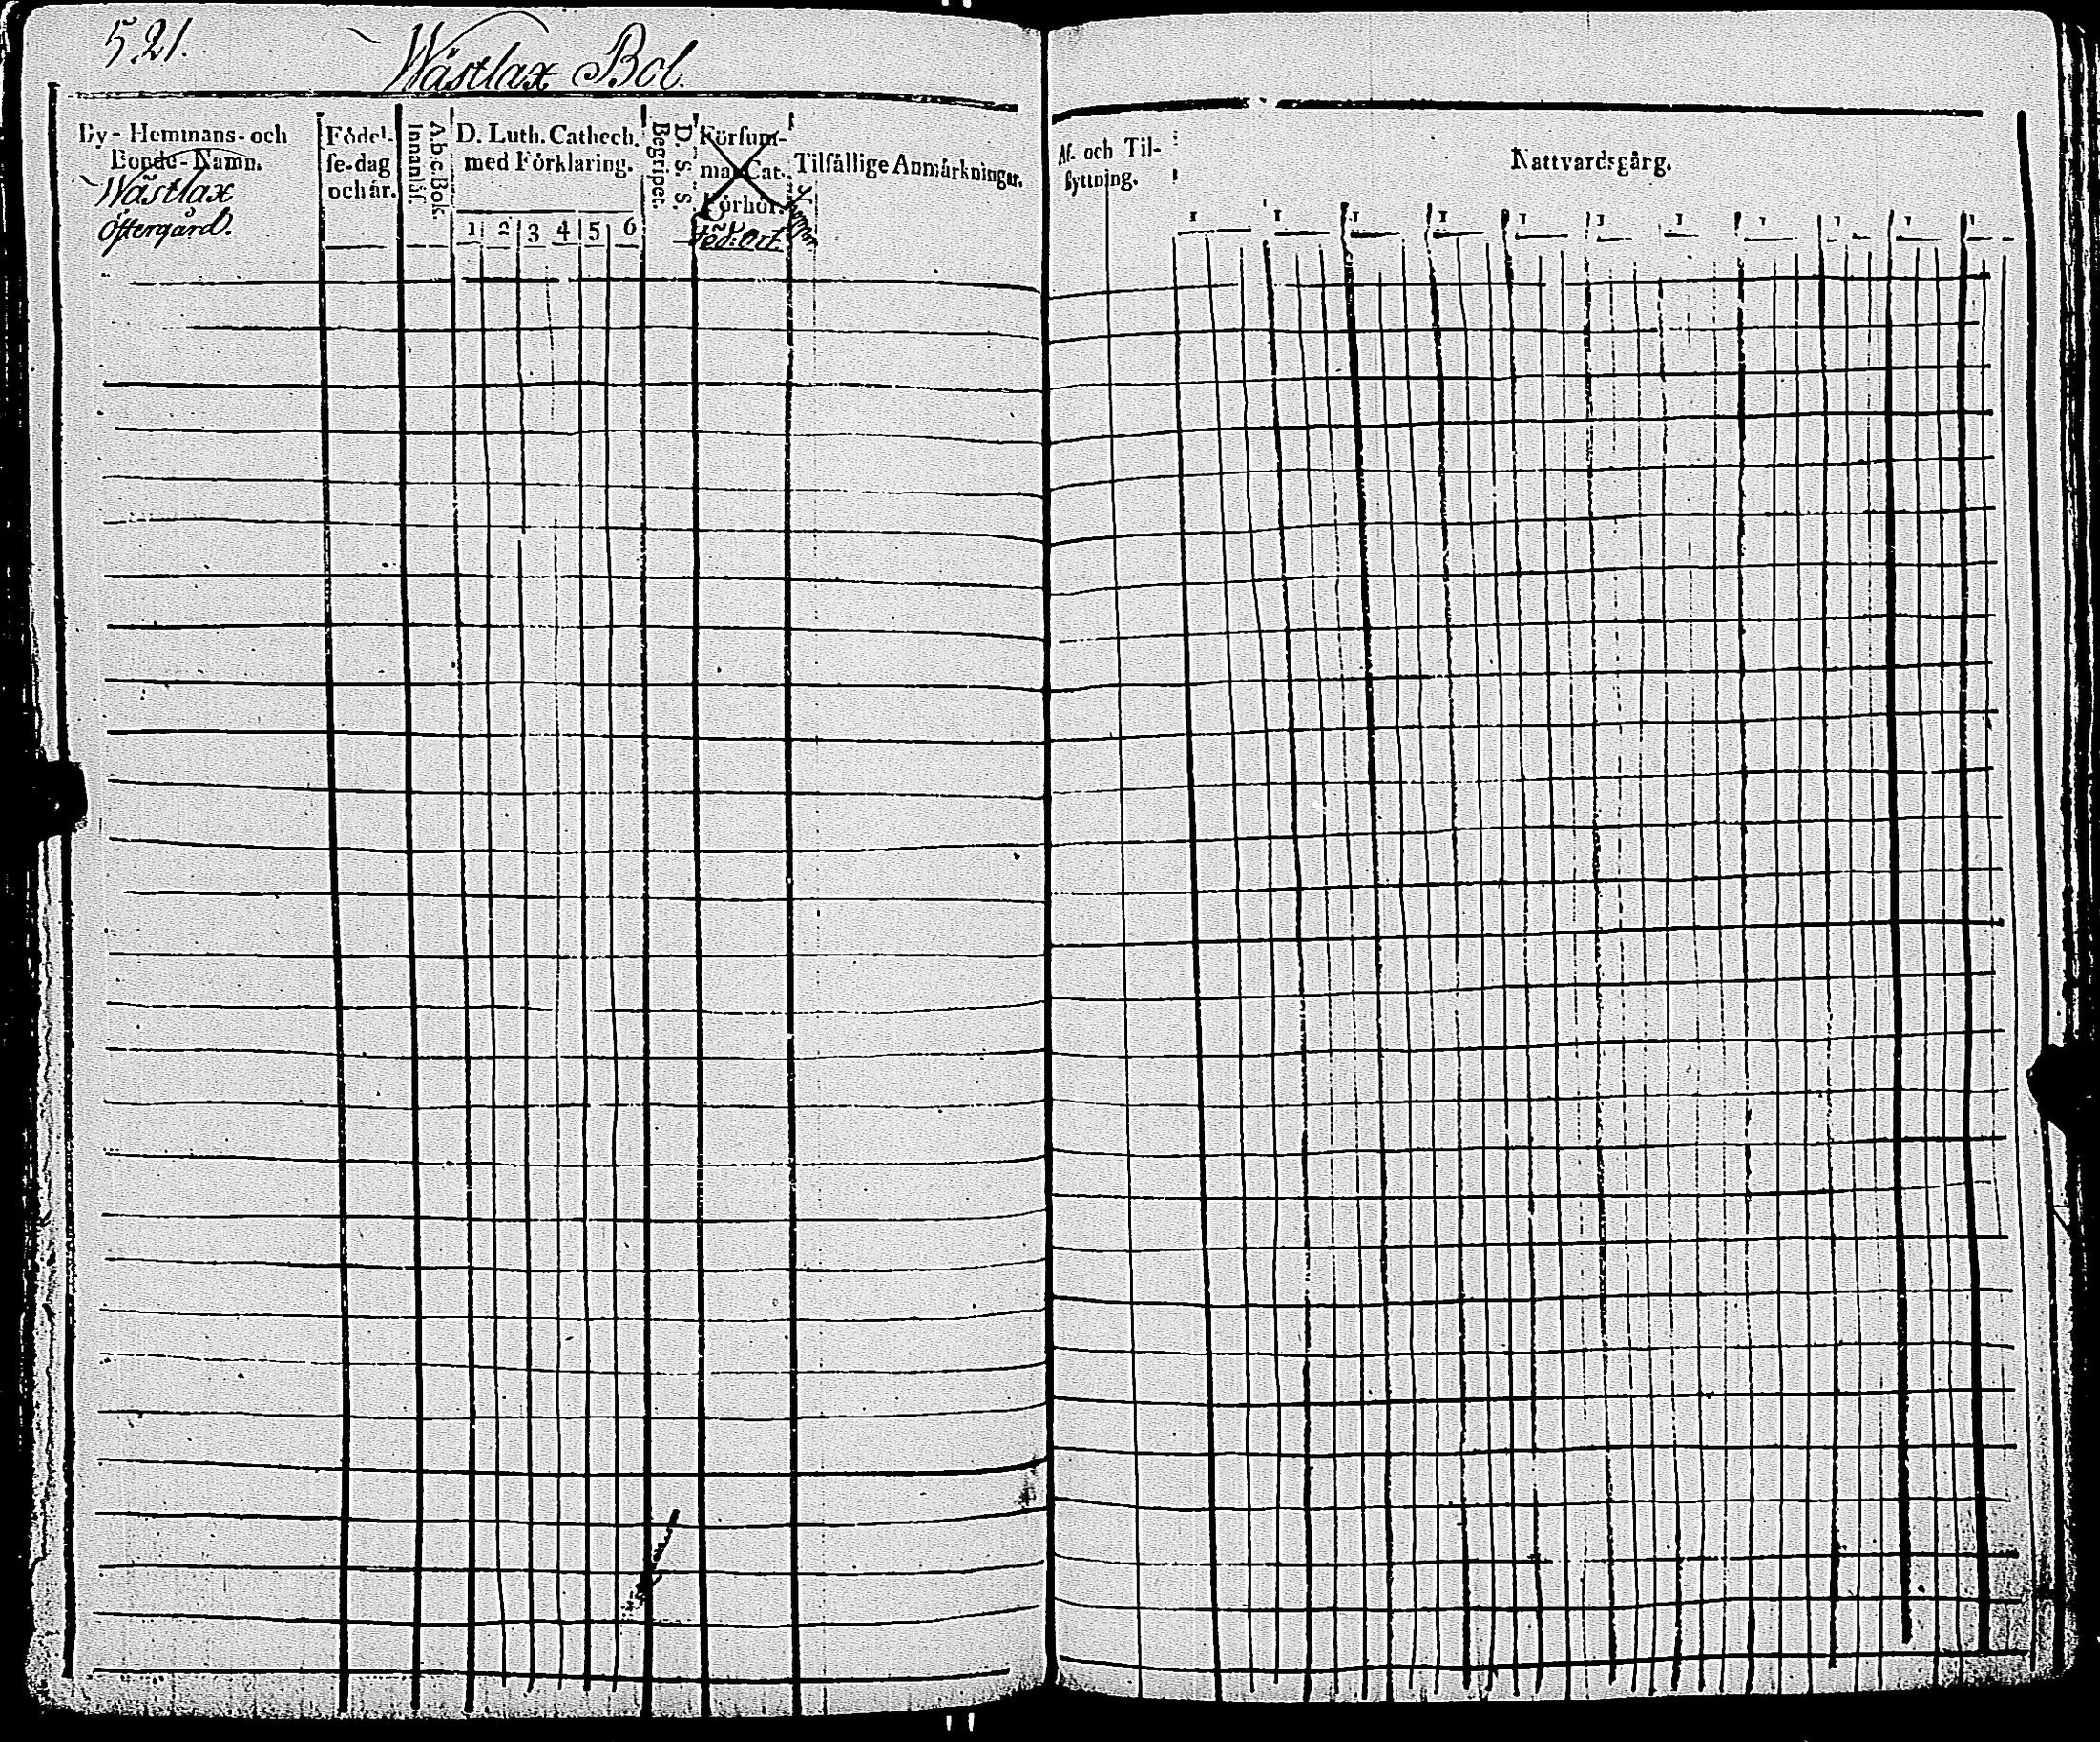 521.
Wästlax Bol.
By- Hemmans- och
Bonde- Namn.
Wästlax
Östergård.
Födel-
se-dag
och år.
A.b.c. Bok.
Innanläs.
D. Luth. Cathech.
med Förklaring.
1 2 3 4 5 6
D. S. S.
Begriper.
Försum-
mat Cat.
Förhör.
Föd: Ort.
Tilfällige Anmärkningar.
Af- och Til-
flyttning.
Nattvardsgång.
1 1 1 1 1 1 1 1 1 1 1